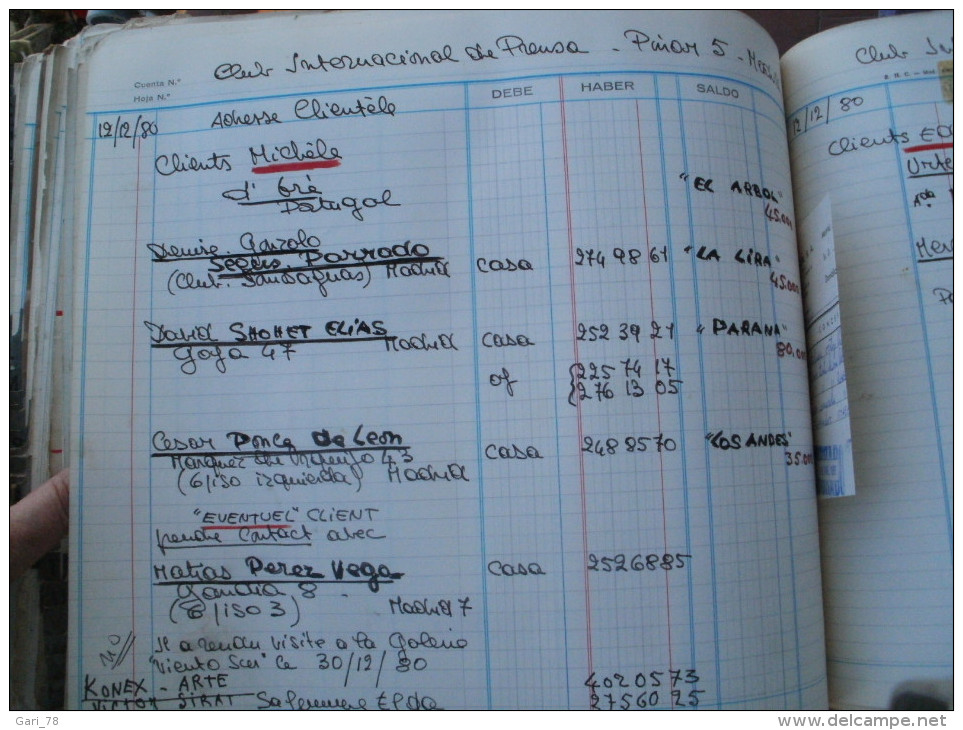 Club Internacional de Prensa - Pinar 5 -
Cuenta N.º
Hoja N.º
DEBE HABER SALDO
12/12/80 Adresse Clientèle
Clients Michèle
d'Oré
Portugal
"EL ARBOL"
45.000
Denise Garzolo
Parrado
(Club. ) Madrid casa 274 98 61 "LA LIRA"
45.000
David SHOHET ELIAS
Goya 47 Madrid casa 252 39 21 "PARANA"
80.000
of {225 74 17
{276 13 05
Cesar Ponce de Leon
43 casa 2488570 "LOS ANDES"
35.000
(6/iso izquierda) Madrid
"EVENTUEL" CLIENT
prendre contact avec
Matias Perez Vega casa 2526885
Gandia 8
(6/iso 3) Madrid 7
Il a rendu visite a la Galerie
"Viento Sur" le 30/12/80
KONEX - ARTE 4020573
VICTOR SIRAT Elda 27560 25
Club
12/12/80
Clients
Gari_78
www.delcampe.net